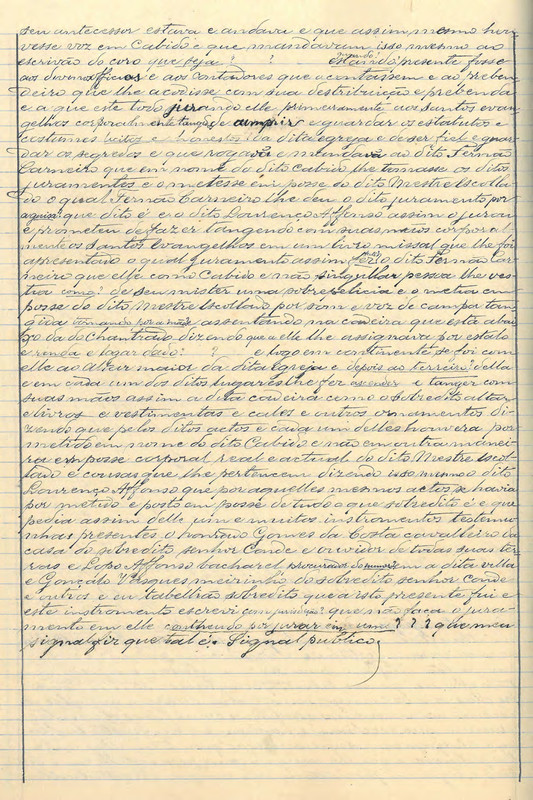 seu antecessor estava e andava e que assim mesmo hou-
vesse voz em Cabido e que mandavam isso mesmo ao
escrivão do coro que seja ? ? - estando presente fosse
aos divinos officios e aos contadores que acontassem e ao preben-
deiro que lhe acodisse com sua destribuição e prebenda
e a que este todo jurando elle primeiramente aos santos evan-
gelhos corporalmente tangidos de cumprir e guardar os estatutos e
costumes licitos e honestos da dita egreja e de ser fiel e guar-
dar os segredos e que rogava e mandava ao dito Fernão
Carneiro que em nome do dito Cabido lhe tomasse os ditos
juramentos e o metesse em posse do dito Mestre Escolla-
do o qual Fernão Carneiro lhe deu o dito juramento por
aquisso? que dito é e o dito Lourenço Affonso assim o jurou
e prometeu de fazer tangendo com suas mãos corporal-
mente os santos Evangelhos em um livro missal que lhe foi
apresentado o qual juramento assim feito o dito Fernão Car-
neiro que elle com Cabido e não singullar pessoa lhe ves-
tia como? de seu mister uma sobrepelicia e o metia em
posse do dito Mestre Escollado por som e voz de campa tan-
gida tomando por a mão assentando na cadeira que está abai-
xo da do Chantrado dizendo que elle lhe assignava por estalo
e renda e logar dado? ? e logo em continente se foi com
elle ao altar maior da dita Egreja e depois ao terreiro? della
e em cada um dos ditos lugares lhe fez ascender e tanger com
suas mãos assim a dita cadeira como o sobredito altar
e livros e vestimentas e calex e outros ornamentos di-
zendo que pelos ditos actos e cada um delles houvera por
metido em nome do dito Cabido e não em outra manei-
ra em posse corporal real e actual do dito Mestre Escol-
lado e cousas que lhe pertencem dizendo isso mesmo o dito
Lourenço Affonso que por aquelles mesmos actos se havia
por metido e posto em posse de tudo o que sobredito é e que
pedia assim delle um e muitos instromentos testemu-
nhas presentes o honrado Gomes da Costa cavalleiro da
casa do sobredito senhor Conde e ouvidor de todas suas ter-
ras e Lopo Affonso bacharel procurador do numero em a dita villa
e Gonçalo Vasques meirinho do sobredito senhor Conde
e outros e eu tabellião sobredito que a isto presente fui e
este instromento escrevi com que não faça o jura-
mento em elle contheudo por jurar em uma ? ? ? que meu
signal fiz que tal é. Signal publico